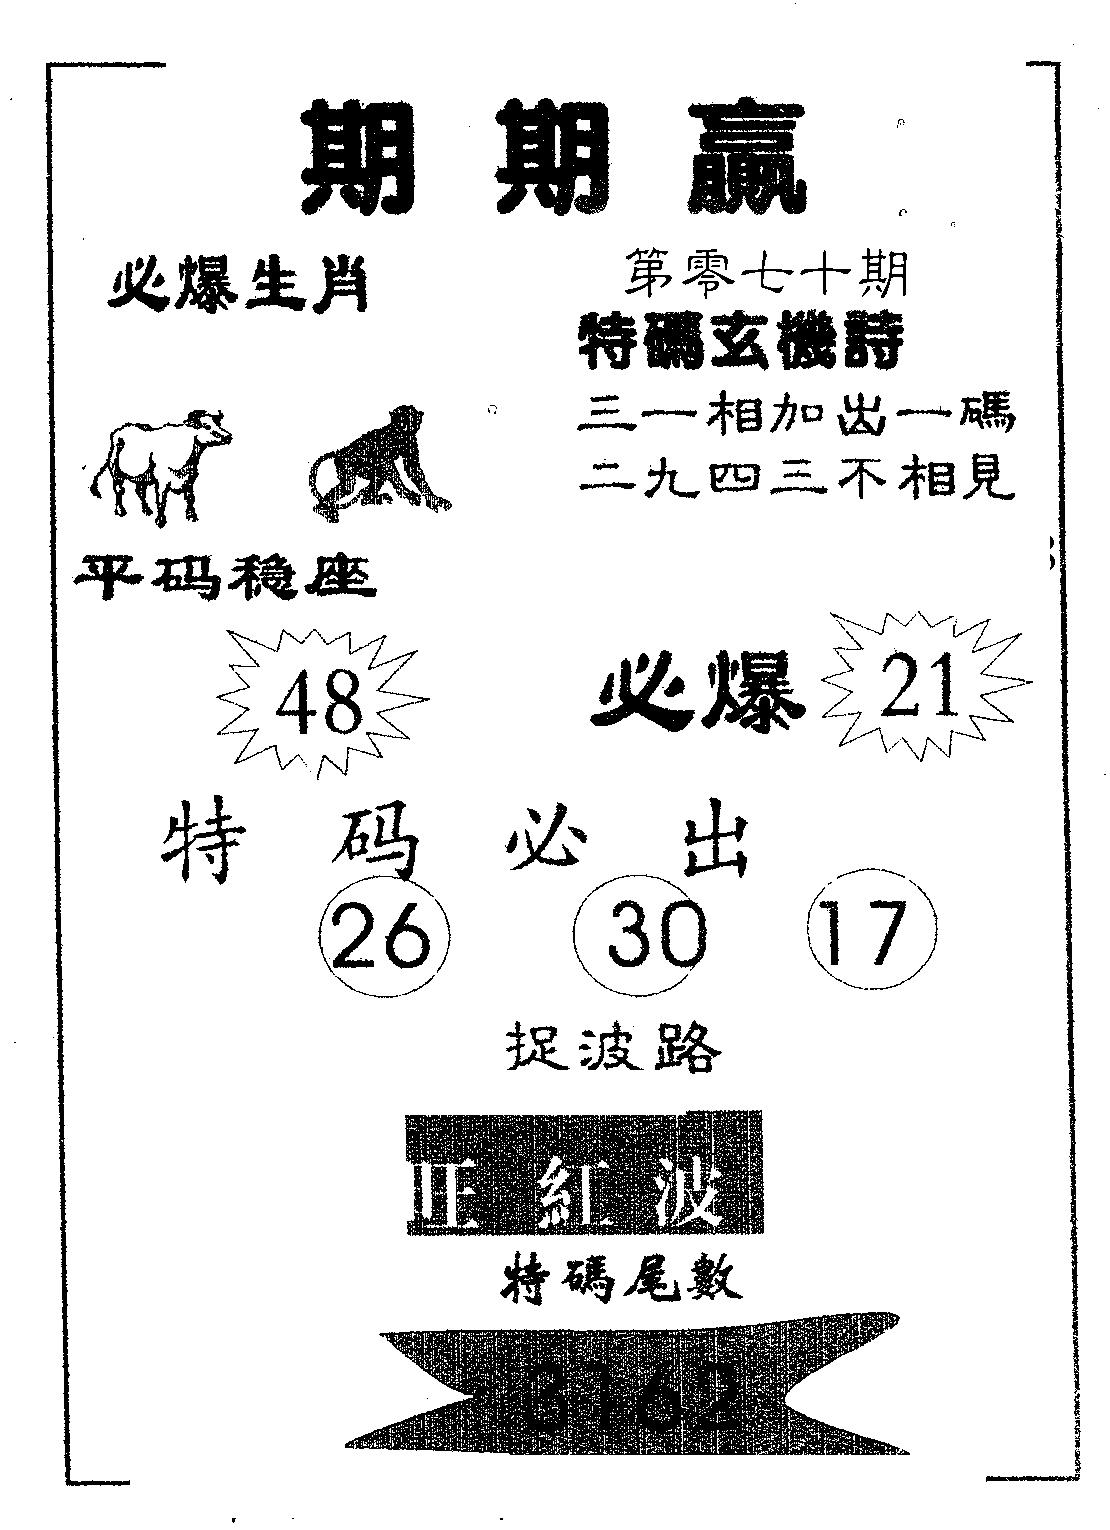 期期贏
必爆生肖
第零七十期
特碼玄機詩
三一相加出一碼
二九四三不相見
平码稳座
48
必爆 21
特码必出
26 30 17
捉波路
旺紅波
特碼尾數
3162